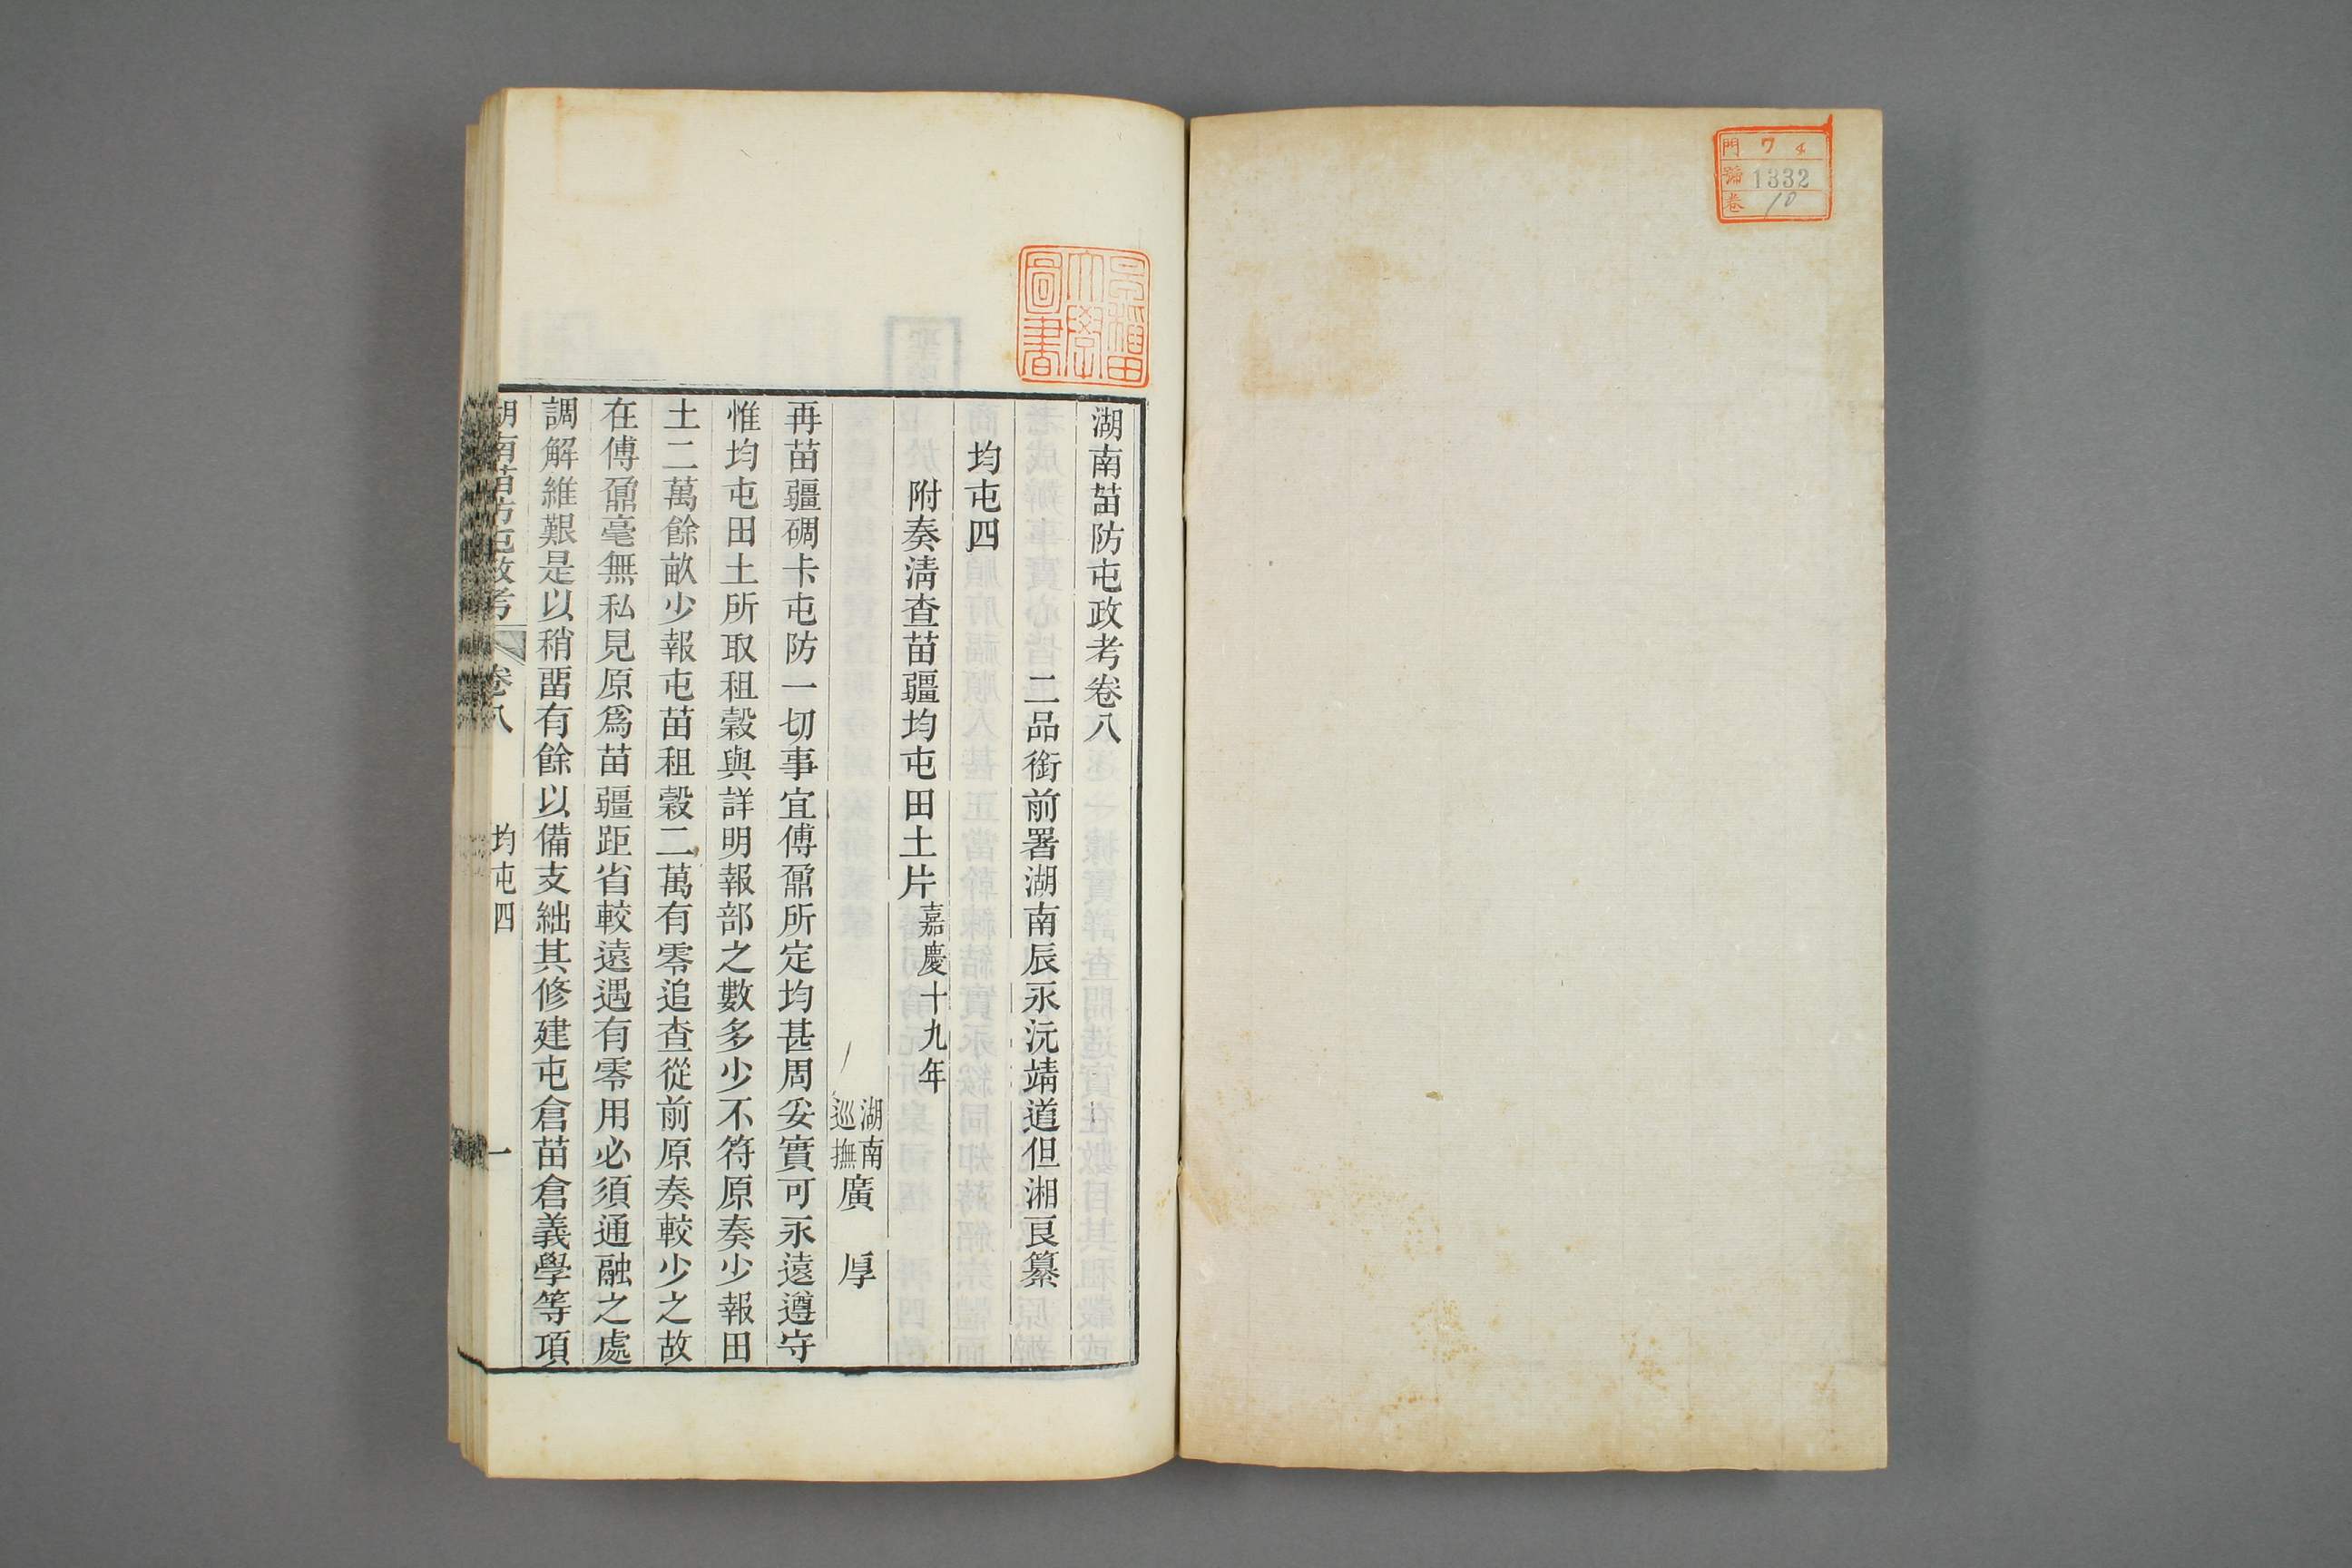 門 ワ 4
號 1332
卷 10
早稲田大學圖書
湖南苗防屯政考卷八
二品銜前署湖南辰永沅靖道但湘良纂
均屯四
附奏淸查苗疆均屯田土片嘉慶十九年
湖南巡撫廣厚
再苗疆碉卡屯防一切事宜傅鼐所定均甚周妥實可永遠遵守
惟均屯田土所取租穀與詳明報部之數多少不符原奏少報田
土二萬餘畝少報屯苗租穀二萬有零追查從前原奏較少之故
在傅鼐毫無私見原爲苗疆距省較遠遇有零用必須通融之處
調解維艱是以稍畱有餘以備支絀其修建屯倉苗倉義學等項
湖南苗防屯政考 卷八 均屯四 一